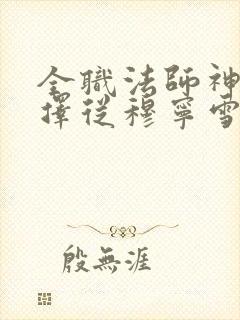 全職法師神
擇從穆寧雪
殷無涯